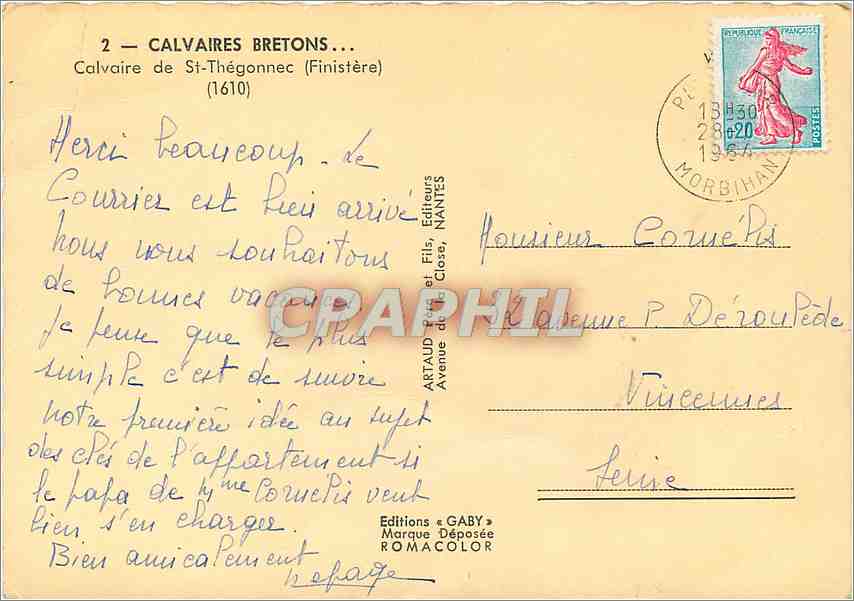 2 — CALVAIRES BRETONS...
Calvaire de St-Thégonnec (Finistère)
(1610)
Merci beaucoup. Le
Courrier est bien arrivé
Nous vous souhaitons
de bonnes vacances.
Je pense que le plus
simple c'est de suivre
notre première idée au sujet
des clés de l'appartement si
le papa de Mme Cornélis veut
bien s'en charger.
Bien amicalement
Lepage
ARTAUD Père et Fils, Editeurs
Avenue de la Close, NANTES
Editions « GABY »
Marque Déposée
ROMACOLOR
REPUBLIQUE FRANÇAISE
0,20
POSTES
18H30
28
1964
MORBIHAN
Monsieur Cornélis
32 avenue P. Déroulède
Vincennes
Seine
CPAPHIL